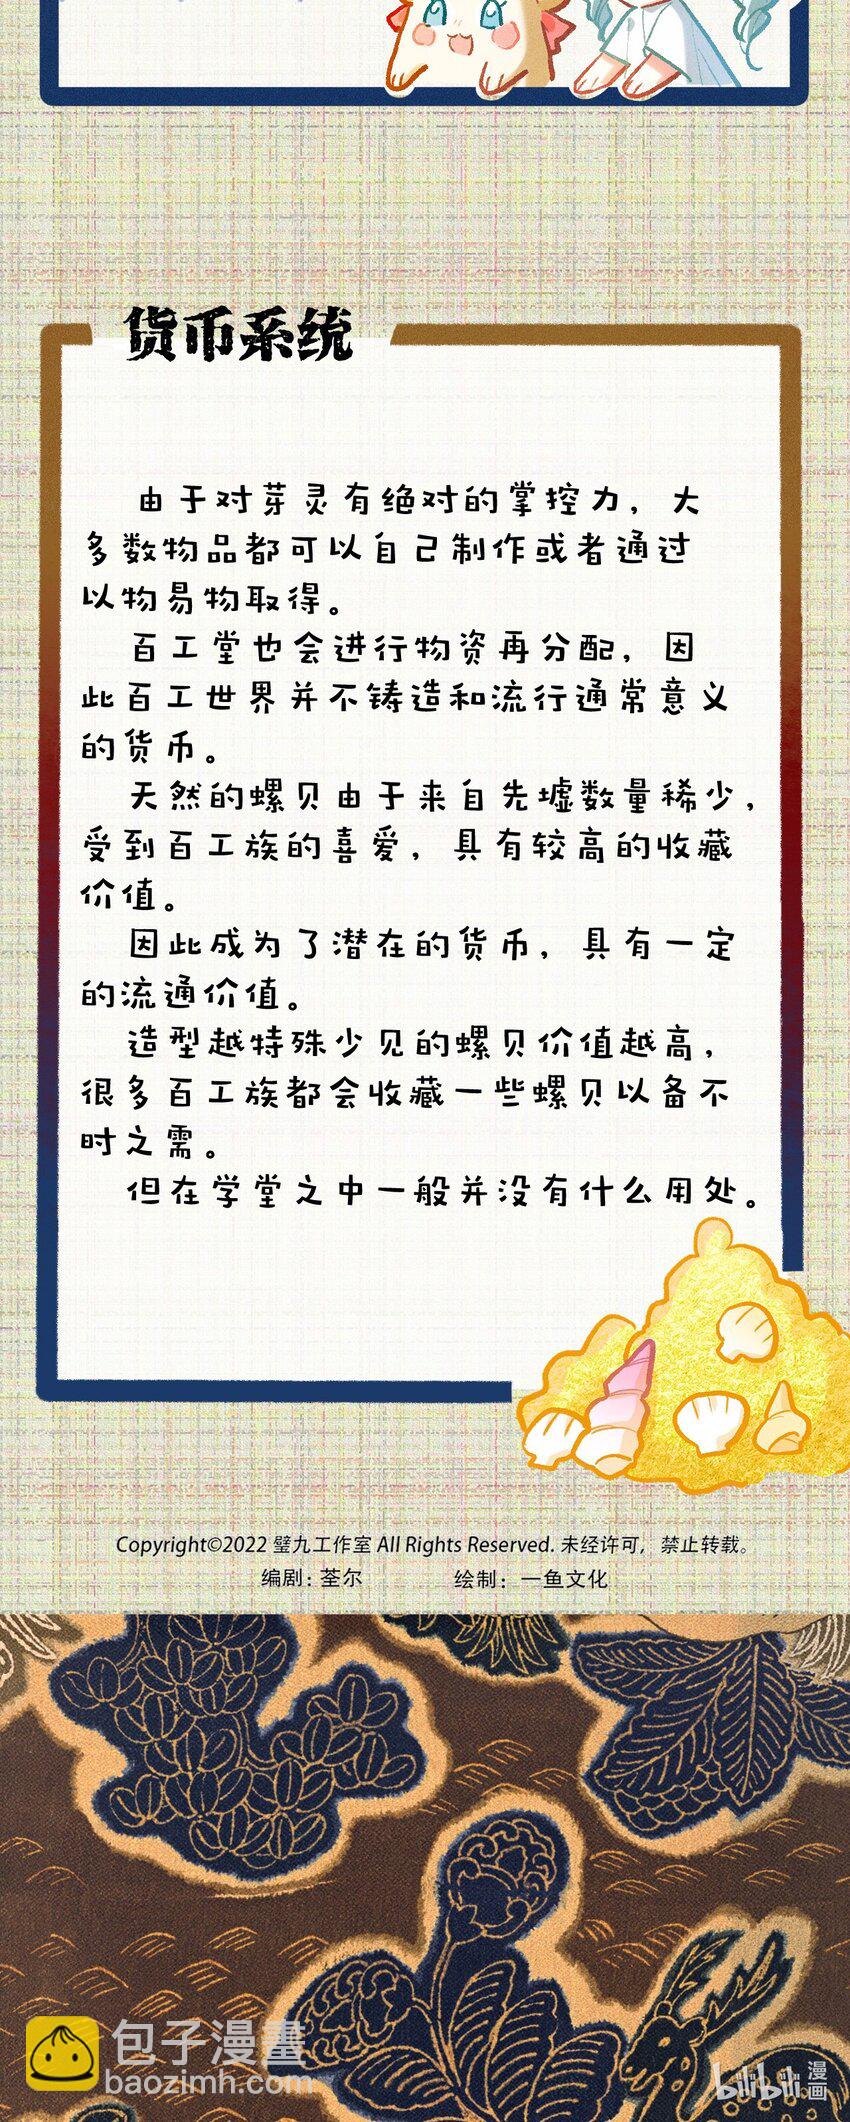 货币系统
由于对芽灵有绝对的掌控力，大
多数物品都可以自己制作或者通过
以物易物取得。
百工堂也会进行物资再分配，因
此百工世界并不铸造和流行通常意义
的货币。
天然的螺贝由于来自先墟数量稀少，
受到百工族的喜爱，具有较高的收藏
价值。
因此成为了潜在的货币，具有一定
的流通价值。
造型越特殊少见的螺贝价值越高，
很多百工族都会收藏一些螺贝以备不
时之需。
但在学堂之中一般并没有什么用处。
Copyright©2022 璧九工作室 All Rights Reserved. 未经许可，禁止转载。
编剧：荃尔 绘制：一鱼文化
包子漫畫
baozimh.com
bilibili 漫画